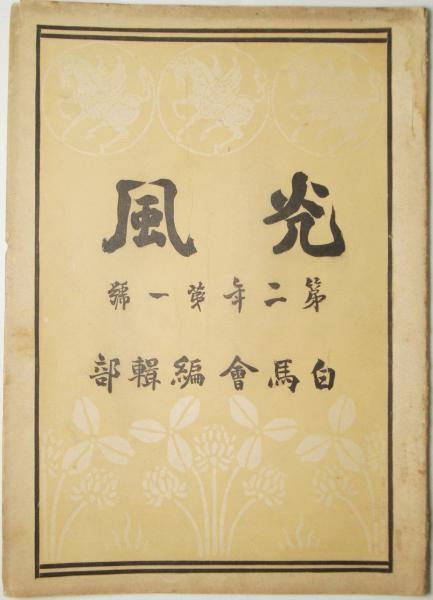 光風
第二年第一號
白馬會編輯部